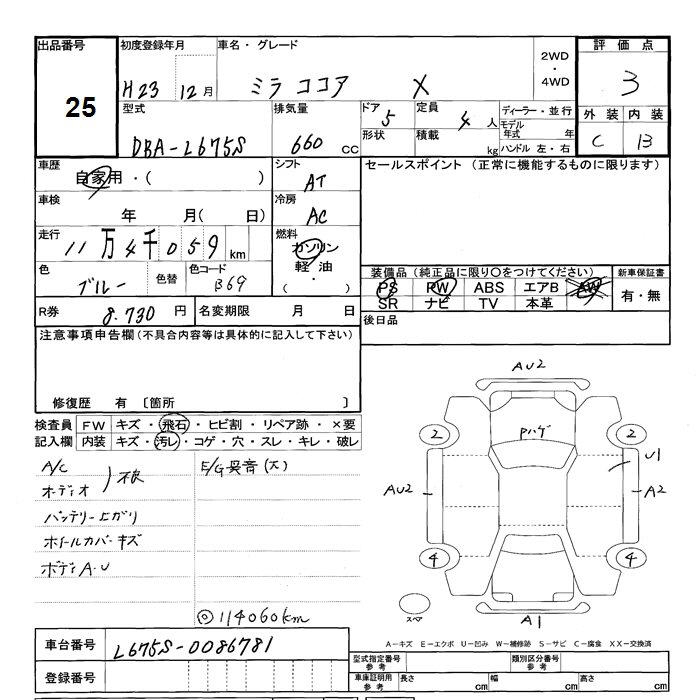 出品番号
25
初度登録年月
H23 12月
車名・グレード
ミラ ココア X
2WD
・
4WD
評価点
3
型式
DBA-L675S
排気量
660 cc
ドア 5
形状
定員 4 人
積載 kg
ディーラー・並行
モデル
年式 年
ハンドル 左・右
外装 内装
C B
車歴
自家用・( )
シフト
AT
セールスポイント (正常に機能するものに限ります)
車検
年 月( 日)
冷房
AC
走行
11万4千059 km
燃料
ガソリン
軽油
・
( )
色
ブルー
色替
色コード
B69
装備品 (純正品に限り○をつけてください)
新車保証書
PS PW ABS エアB AW
SR ナビ TV 本革
有・無
R券 8.730 円
名変期限 月 日
後日品
注意事項申告欄(不具合内容等は具体的に記入して下さい)
修復歴 有 〔箇所 〕
検査員 FW キズ・飛石・ヒビ割・リペア跡・×要
記入欄 内装 キズ・汚レ・コゲ・穴・スレ・キレ・破レ
A/C
オーディオ
E/G異音(大)
バッテリー上がり
ホイールカバーキズ
ボディA・U
◎114060km
AU2
Pハゲ
2 2
U1
AU2 A2
4 4
スペア
A1
車台番号 L675S-0086781
登録番号
A−キズ E−エクボ U−凹み W−補修跡 S−サビ C−腐食 XX−交換済
型式指定番号
参考
類別区分番号
参考
車庫証明用
参考
長さ cm 幅 cm 高さ cm